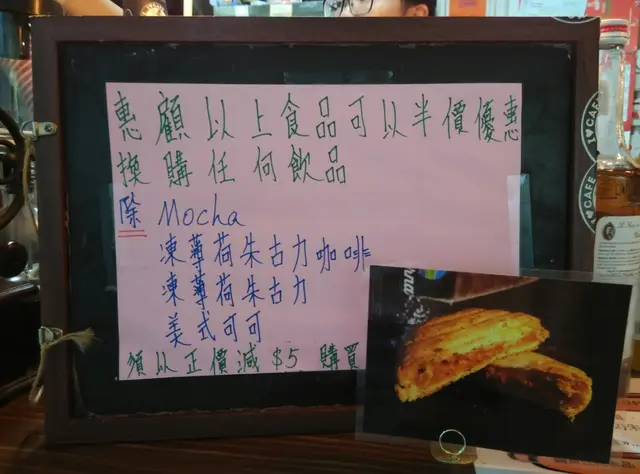 惠顧以上食品可以半價優惠
換購任何飲品
除 Mocha
凍薄荷朱古力咖啡
凍薄荷朱古力
美式可可
須以正價減 $5 購買
I ♥ CAFE
I ♥ CAFE